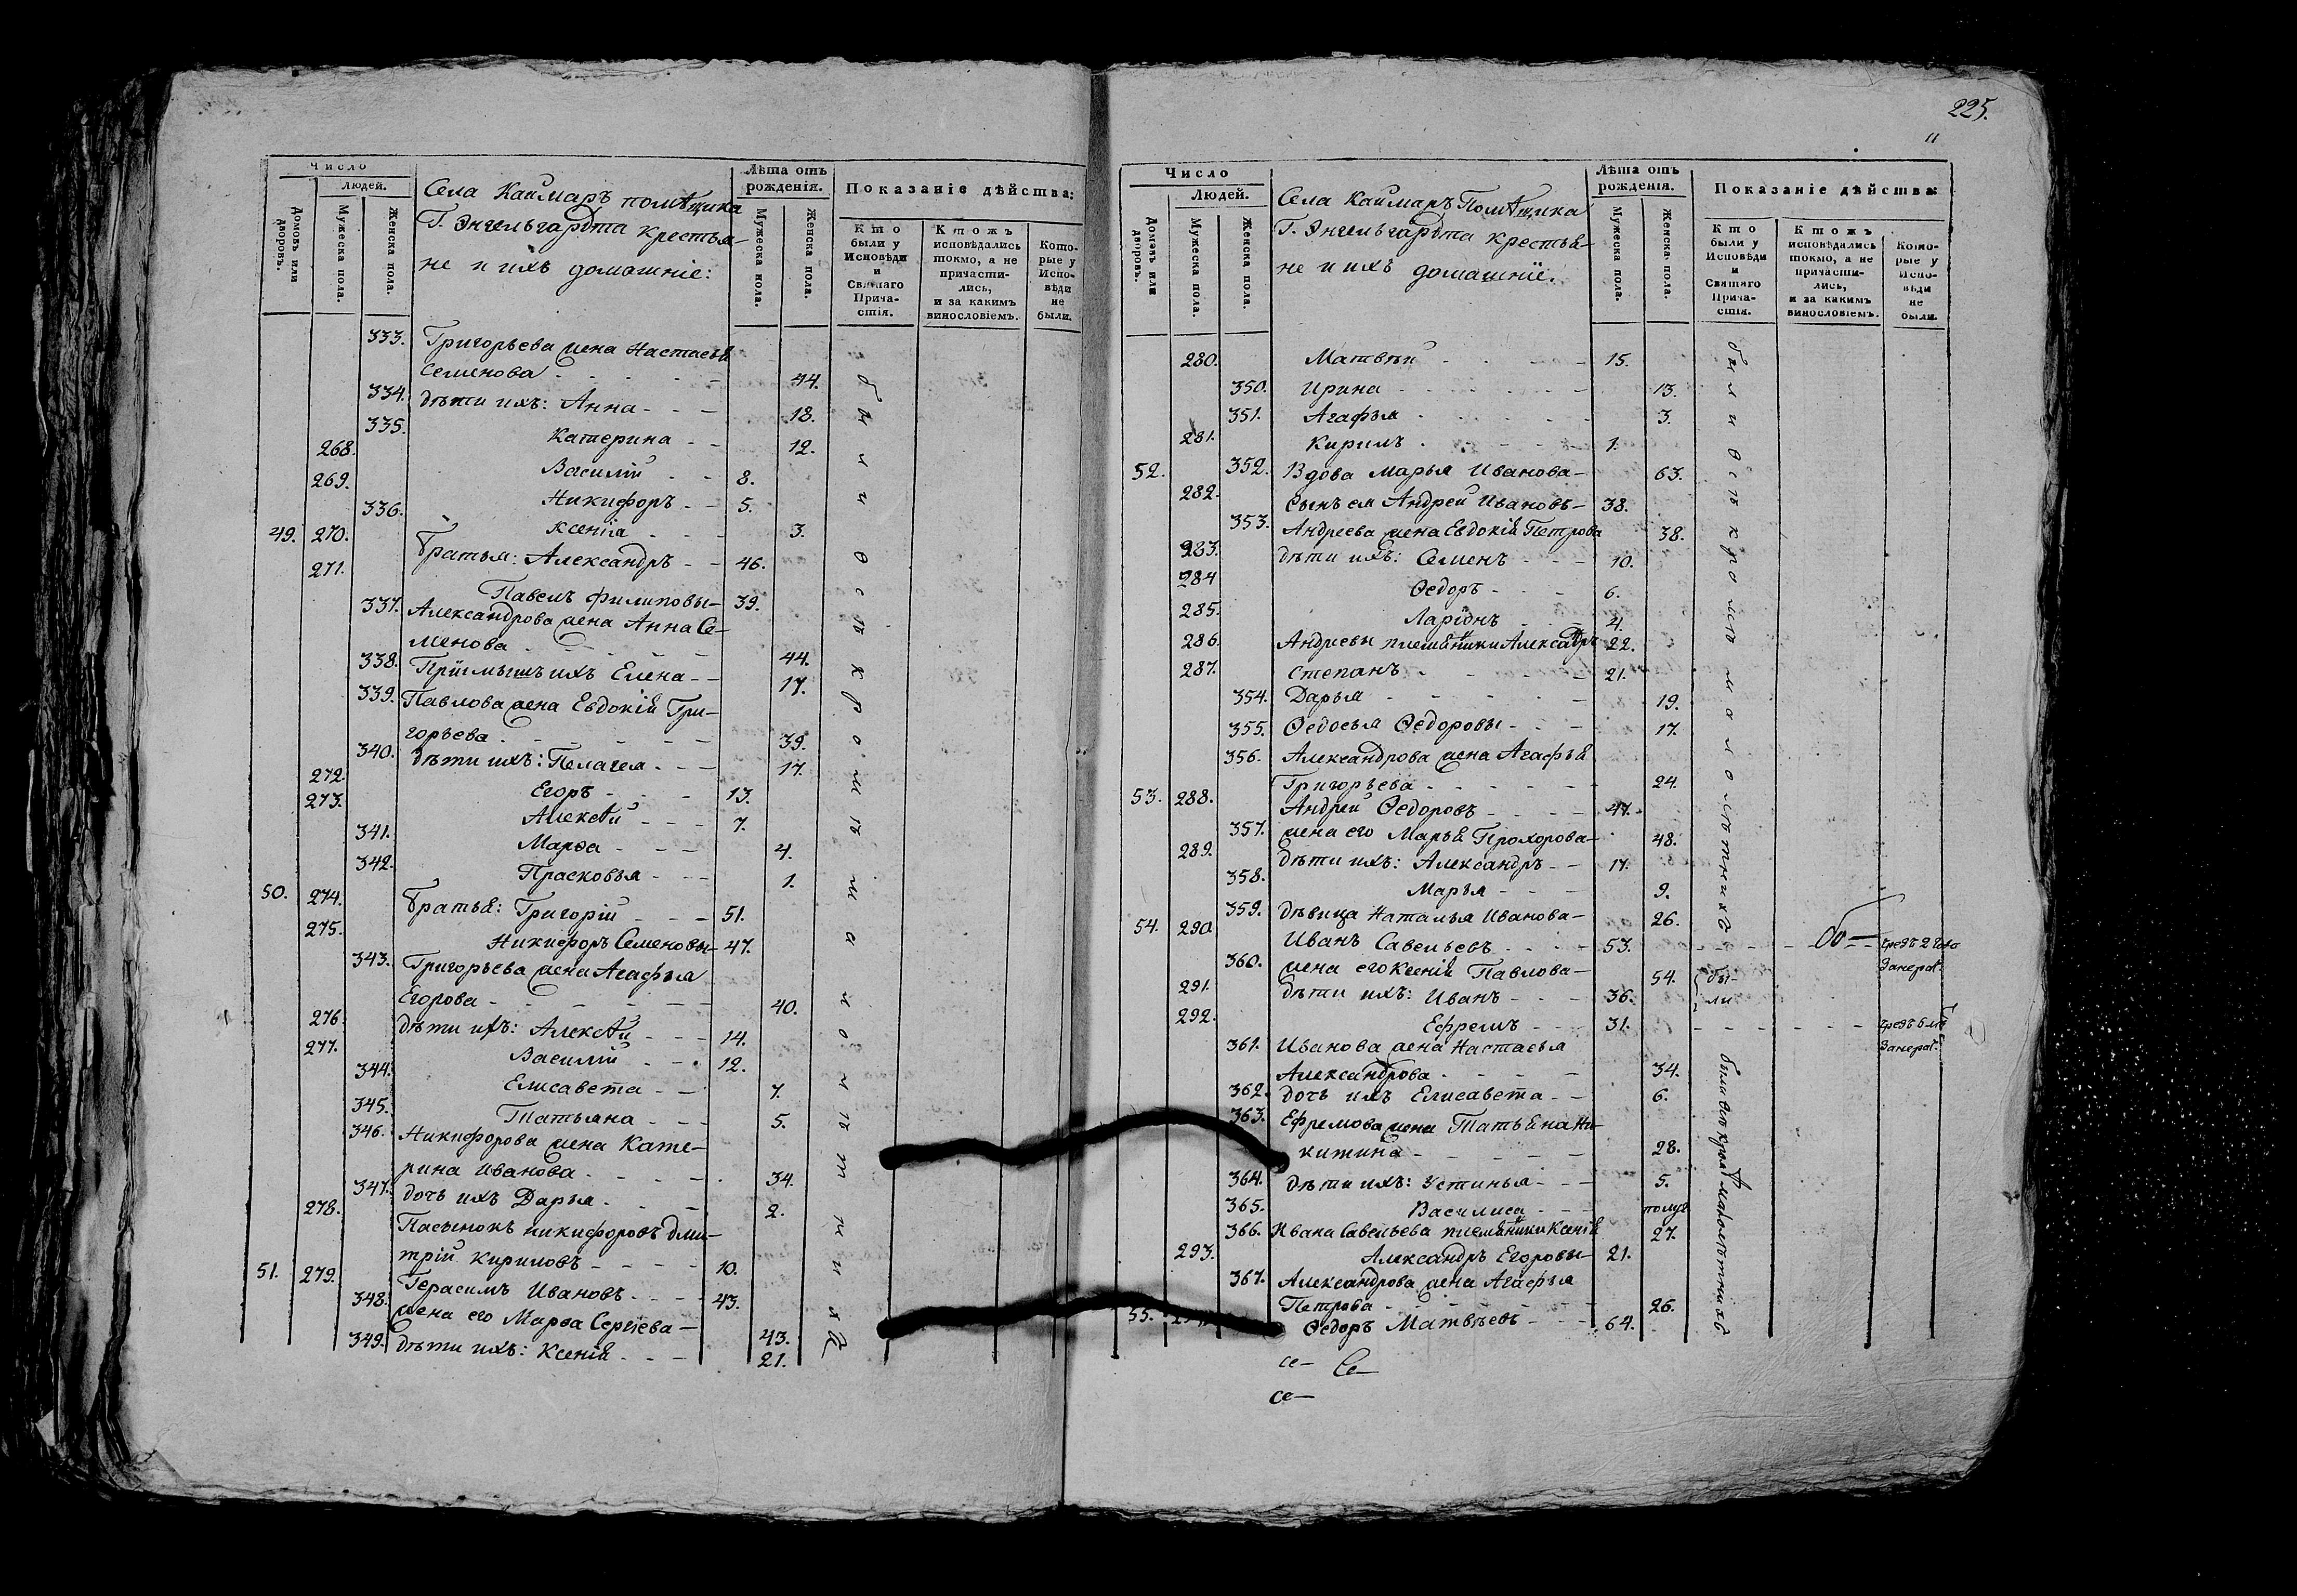 Число
Людей.
Домовъ или дворовъ.
Мужеска пола.
Женска пола.
Села Каймаръ помѣщика
Г. Энгельгардта крестья-
не и ихъ домашніе:
Лѣта отъ
рожденія.
Мужеска пола.
Женска пола.
Показаніе дѣйства:
Кто
были у
Исповѣди
и
Святаго
Прича-
стія.
Ктожъ
исповѣдались
токмо, а не
причасти-
лись,
и за какимъ
винословіемъ.
Кото-
рые у
Испо-
вѣди
не
были.
333. Григорьева жена Настасья
Семенова - 44.
334. дѣти ихъ: Анна - 18.
335. Катерина - 12.
268. Василій - 8.
269. Никифоръ - 5.
336. Ксенія - 3.
49. 270. Братья: Александръ - 46.
271. Павелъ Филиповы - 39.
337. Александрова жена Анна Се-
менова - 44.
338. Пріимышъ ихъ Елена - 17.
339. Павлова жена Евдокія Гри-
горьева - 39.
340. дѣти ихъ: Пелагея - 17.
272. Егоръ - 13.
273. Алексѣй - 7.
341. Марѳа - 4.
342. Прасковья - 1.
50. 274. Братья: Григорій - 51.
275. Никифоръ Семеновы - 47.
343. Григорьева жена Агафья
Егорова - 40.
276. дѣти ихъ: Алексѣй - 14.
277. Василій - 12.
344. Елисавета - 7.
345. Татьяна - 5.
346. Никифорова жена Кате-
рина Иванова - 34.
347. дочь ихъ Дарья - 2.
278. Пасынокъ никифоровъ Дми-
трій Кириловъ - 10.
51. 279. Герасимъ Ивановъ - 43.
348. жена его Марѳа Сергіева - 43.
349. дѣти ихъ: Ксенія - 21.
были всѣ кромѣ малолѣтнихъ
225.
Число
Людей.
Домовъ или дворовъ.
Мужеска пола.
Женска пола.
Села Каймаръ Помѣщика
Г. Энгельгардта крестья-
не и ихъ домашніе.
Лѣта отъ
рожденія.
Мужеска пола.
Женска пола.
Показаніе дѣйства:
Кто
были у
Исповѣди
и
Святаго
Прича-
стія.
Ктожъ
исповѣдались
токмо, а не
причасти-
лись,
и за какимъ
винословіемъ.
Кото-
рые у
Испо-
вѣди
не
были.
280. Матвѣй - 15.
350. Ирина - 13.
351. Агафья - 3.
281. Кирилъ - 1.
52. 352. Вдова Марья Иванова - 63.
282. Сынъ ея Андрей Ивановъ - 38.
353. Андреева жена Евдокія Петрова 38.
283. дѣти ихъ: Семенъ - 10.
284 Ѳедоръ - 6.
285. Ларіонъ - 4.
286. Андреевы племянники Александръ 22.
287. Степанъ - 21.
354. Дарья - 19.
355. Ѳедосья Ѳедоровы - 17.
356. Александрова жена Агафья
Григорьева - 24.
53. 288. Андрей Ѳедоровъ - 47.
357. жена его Марья Прохорова - 48.
289. дѣти ихъ: Александръ - 17.
358. Марья - 9.
359. дѣвица Наталья Иванова - 26.
54. 290. Иванъ Савельевъ - 53.
360. жена его Ксенія Павлова - 54. бы-
291. дѣти ихъ: Иванъ - 36. ли
292. Ефремъ - 31.
361. Иванова жена Настасья
Александрова - 34.
362. дочь ихъ Елисавета - 6.
363. Ефремова жена Татьяна Ни-
китина - 28.
364. дѣти ихъ: Устинья - 5.
365. Василиса -
366. Ивана Савельева племянники Ксенія 27.
293. Александръ Егоровы - 21.
367. Александрова жена Агафья
Петрова - 26.
55. Ѳедоръ Матвѣевъ - 64.
были всѣ кромѣ малолѣтнихъ
были всѣ кромѣ малолѣтнихъ